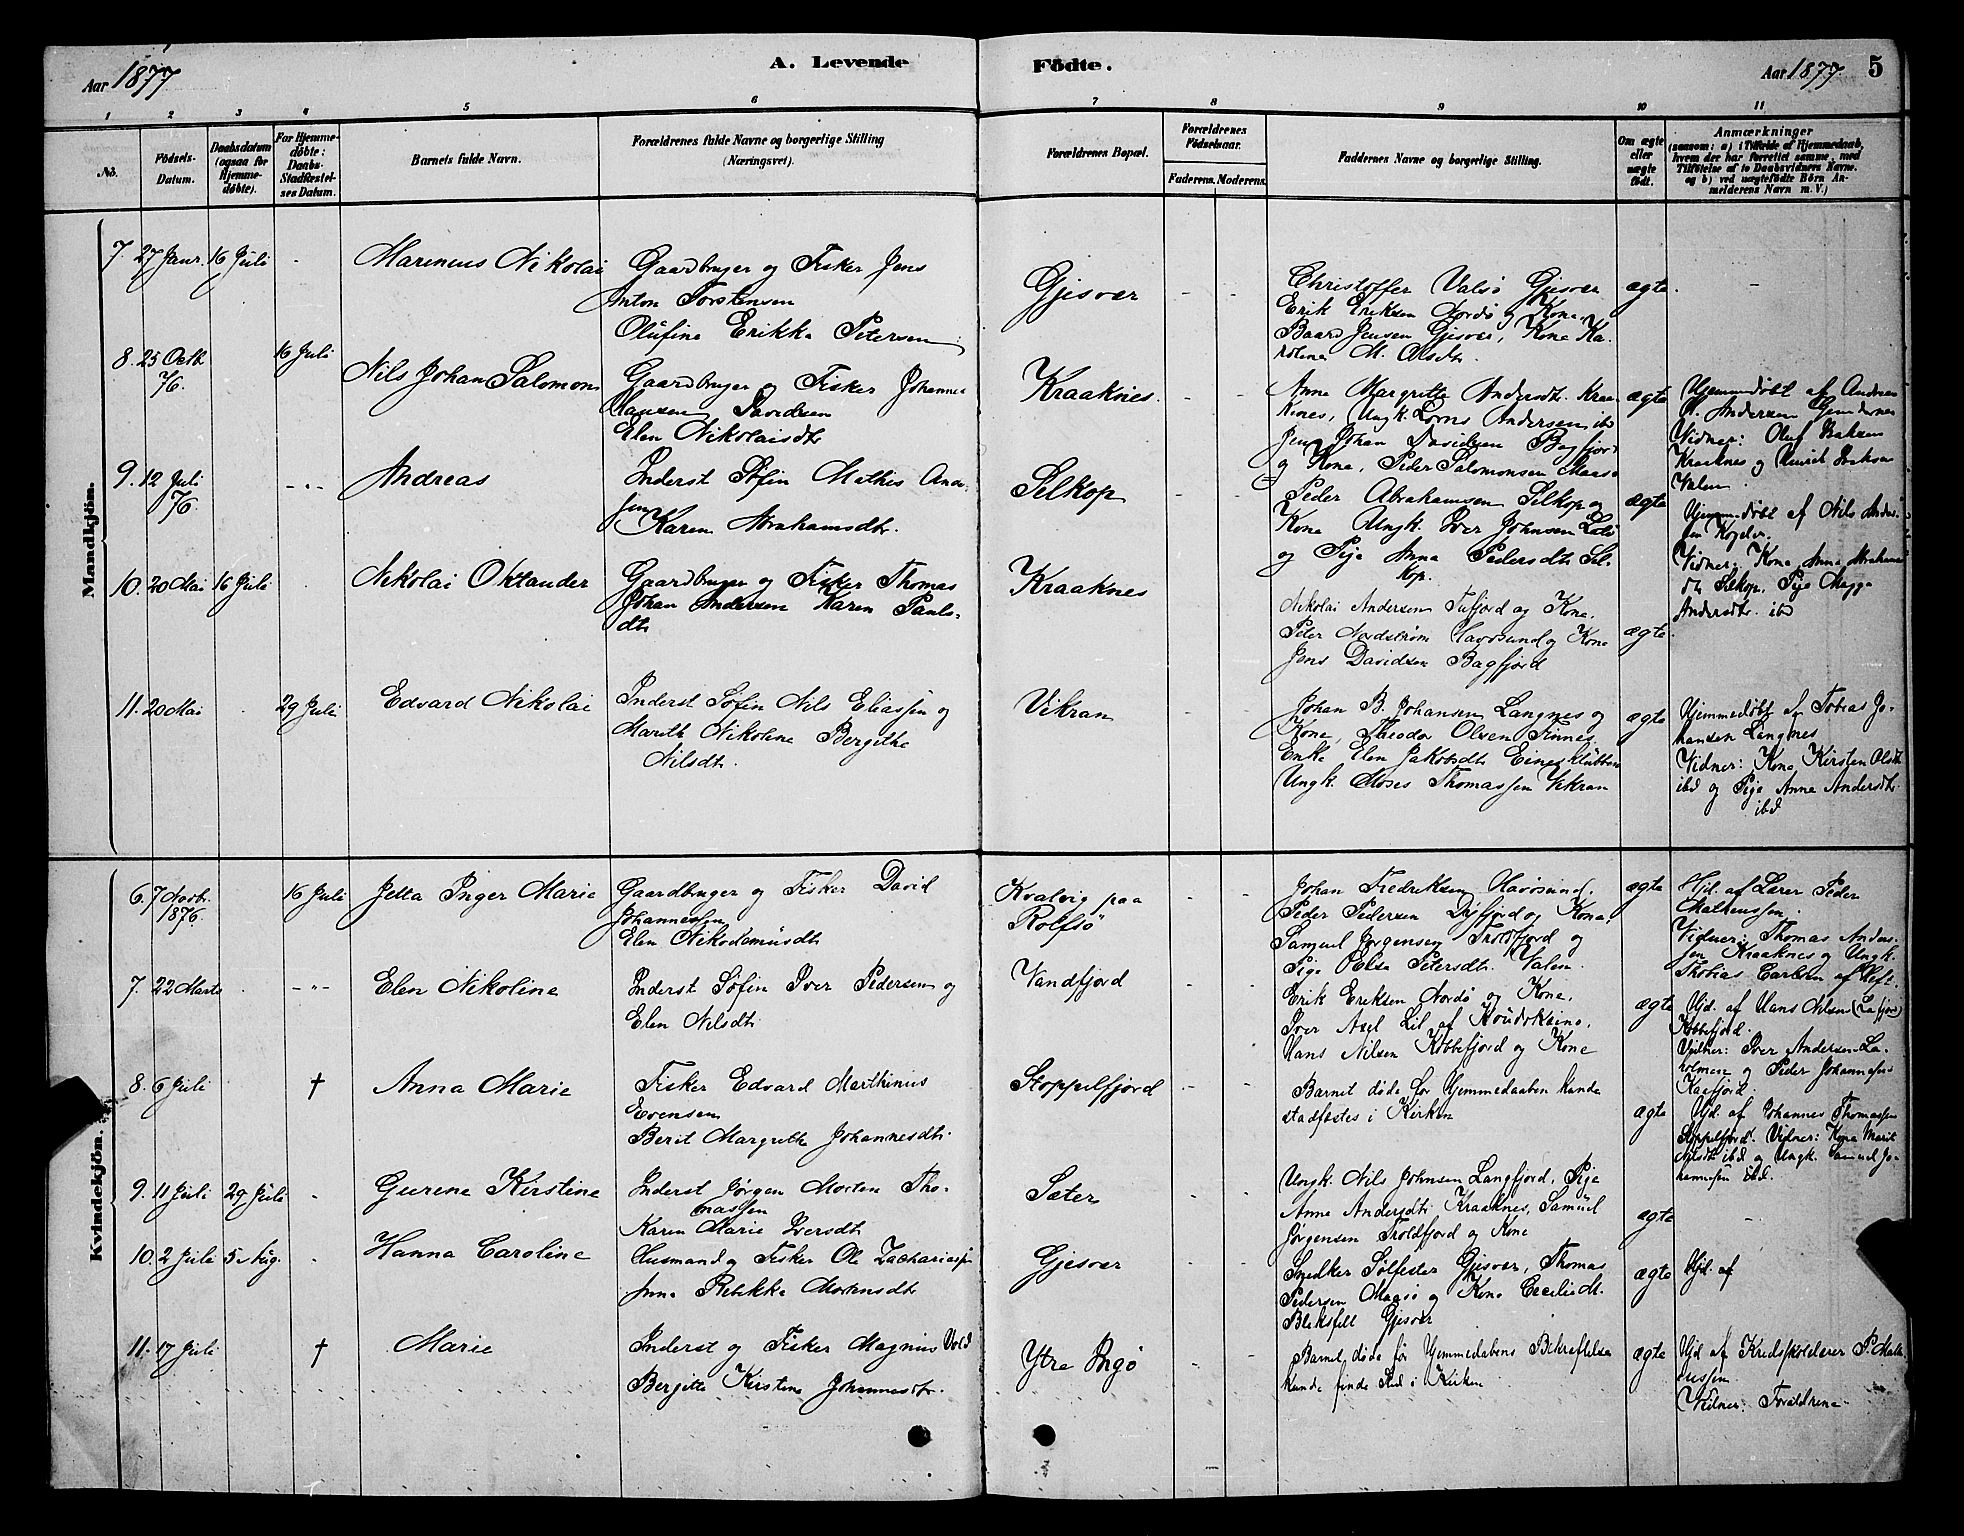 Aar 1877
A. Levende
Födte.
Aar 1877.
5
1 2 3 4 5 6 7 8 9 10 11
No.
Födsels-Datum.
Daabsdatum (ogsaa for Hjemme-døbte).
For Hjemme-døbte: Daabs-Stadfæstel-ses Datum.
Barnets fulde Navn.
Forældrenes fulde Navne og borgerlige Stilling (Næringsvei).
Forældrenes Bopæl.
Forældrenes Födselsaar.
Faderens. Moderens.
Faddernes Navne og borgerlige Stilling.
Om ægte eller uægte født.
Anmærkninger
(saasom: a) i Tilfælde af Hjemmedaab, hvem der har forrettet samme, med Tilföielse af to Daabsvidners Navne, og b) ved uægtefödte Börn An-melderens Navn m. V.)
Mandkjön.
7. 27 Janr. 16 Juli - Marenius Nikolai
Gaardbruger og Fisker Jens
Anton Torstensen
Olufine Erikka Petersen
Gjesvær - -
Christoffer Valsø Gjesvær
Erik Eriksen Nordø og Kone.
Baard Jensen Gjesvær, Kone Ka-
rolina M. Olsdtr.
ægte. -
8. 25 Octb. 76. 16 Juli
Nils Johan Salomon
Gaardbruger og Fisker Johannes
Hansen Davidsen
Elen Nikolaisdtr
Kraaknes. - -
Anne Margritte Andersdtr. Kraa-
knes, Ungk. Andersen ibd
Jens Johan Davidsen Bagfjord
og Kone, Peder Salomonsen Maasø
ægte
Hjemmedøbt af Andreas
Andersen
Vidner: Oluf Isaksen
Kraaknes og Isaksen
Valen.
9. 12 Juli 76 - " -
Andreas
Inderst Søfin Mathis Ander-
sen
Karen Abrahamsdtr.
Selkop - -
Peder Abrahamsen Selkop og
Kone Ungk. Iver Johnsen
og Pige Anna Pedersdtr Sel-
kop.
ægte
Hjemmedøbt af Nils Ander-
sen
Vidner: Kone Anna Abrahams
dtr Selkop. Pige Magga
Andersdtr. ibd
10. 20 Mai 16 Juli -
Nikolai Oktander
Gaardbruger og Fisker Thomas
Johan Andersen Karen Pauls-
dtr
Kraaknes
Nikolai Andersen Tufjord og Kone.
Peter Nordstrøm Havøsund og Kone
Jens Davidsen Bagfjord
ægte.
11. 20 Mai - 29 Juli
Edvard Nikolai
Inderst Søfin Nils Eliassen og
Marith Nikoline Bergithe
Nilsdtr.
Vikran
Johan B. Johansen Langnes og
Kone, Theodor Olsen Finnes
Enke Elen Jakobsdtr Einesklubben
Ungk. Moses Thomassen Vikran
ægte
Hjemmedøbt af Tobias Jo-
hansen Langnes
Vidner: Kone Kirsten Olsdtr
ibd og Pige Anna Andersdtr.
ibd
Kvindekjön.
6. 7 Novbr. 1876. 16 Juli
Jetta Inger Marie
Gaardbruger og Fisker David
Johannessen
Elen Nikodemusdtr
Kvalvig paa
Rolfsø - -
Johan Fredriksen Havøsund.
Peder Pedersen og Kone.
Samuel Jørgensen Troldfjord og
Pige Elsa Petersdtr. Valen.
ægte
Hjd. af Lærer Peder
Matheussen.
Vidner: Thomas Anders-
sen Kraaknes og Ungk.
Thobias Carlsen af
7. 22 Marts - - " -
Elen Nikoline
Inderst Søfin Iver Pedersen og
Elen Nilsdtr
Vandfjord - -
Erik Eriksen Nordø og Kone.
Iver Axel Lil af Koudokeino.
Hans Nilsen Kobbefjord og Kone
ægte
Hjd. af Hans Nilsen
Kobbefjord.
Vidner: Iver Andersen La-
holmen og Peder Johannesen
Kaafjord.
8. 6 Juli †
Anna Marie
Fisker Edvard Marthinius
Evensen
Berit Margrethe Johannesdtr.
Stoppelfjord - -
Barnet døde før Hjemmedaaben kunde
stadfæstes i Kirken
ægte
Hjd. af Johannes Thomassen
Stoppelfjord. Vidner: Kone Marit
Nilsdtr ibd og Ungk. Samuel Jo-
hannesen ibd.
9. 11 Juli 29 Juli -
Gurene Kirstine
Inderst Jørgen Morten Tho-
massen
Karen Marie Iversdtr
Sæter - -
Ungk. Nils Johnsen Langfjord, Pige
Anne Andersdtr Kraaknes, Samuel
Jørgensen Troldfjord og Kone
ægte -
10. 2 Juli 5 Aug. -
Hanna Caroline
Husmand og Fisker Ole Zachariassen
Anna Rebekka Mortensdtr
Gjesvær - -
Snedker Sølfester Gjesvær, Thomas
Pedersen Maasø og Kone Cecilie M.
Gjesvær
ægte Hjd. af
11. 17 Juli †
Marie
Inderst og Fisker Magnus Vold
Bergitte Kirstine Johannesdtr.
Ytre Ingø
Barnet døde før Hjemmedabens Bekræftelse
kunde finde Sted i Kirken
ægte
Hjd af Kredsskolelærer P. Mathe-
ussen.
Vidner: Forældrene